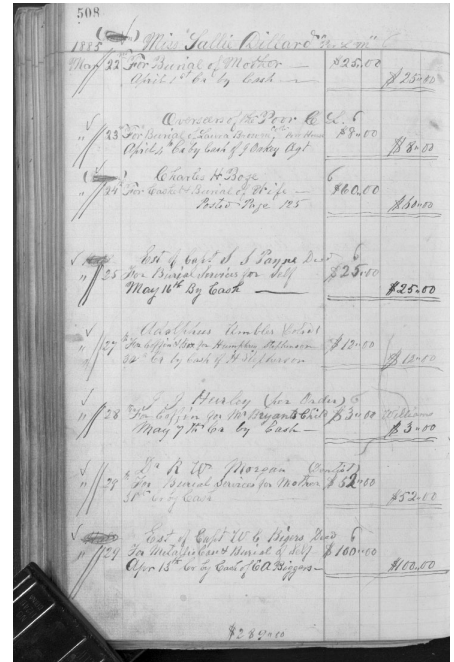 508
1885 Miss Sallie Dillard
May 22 For Burial of Mother — $25.00
April 1st Cr by Cash — $25.00
Overseers of the Poor C. L. 6
" 23 For Burial of Laura Brown $8.00
April 4th Cr by Cash of J Oakey Agt $8.00
Charles H Boze 6
" 24 For Casket & Burial of Wife — $60.00
Posted Page 125 $60.00
Est of Capt S J Payne Decd 6
" 25 For Burial Services for Self $25.00
May 16th By Cash — $25.00
Adolphus
" 27 For Coffin & Box for $12.00
Cr by Cash of H $12.00
Hurley (for Order) 6
" 28 For Coffin for Mr Bryants Child $3.00 Williams
May 7th Cr by Cash — $3.00
Dr R W Morgan (Dentist)
" 28 For Burial Services for Mother $52.00
Cr by Cash $52.00
Est of Capt W C Bigers Decd 6
" 29 For Metallic Case & Burial of Self $100.00
Apr 15th Cr by Cash of C A Biggers — $100.00
$289.00